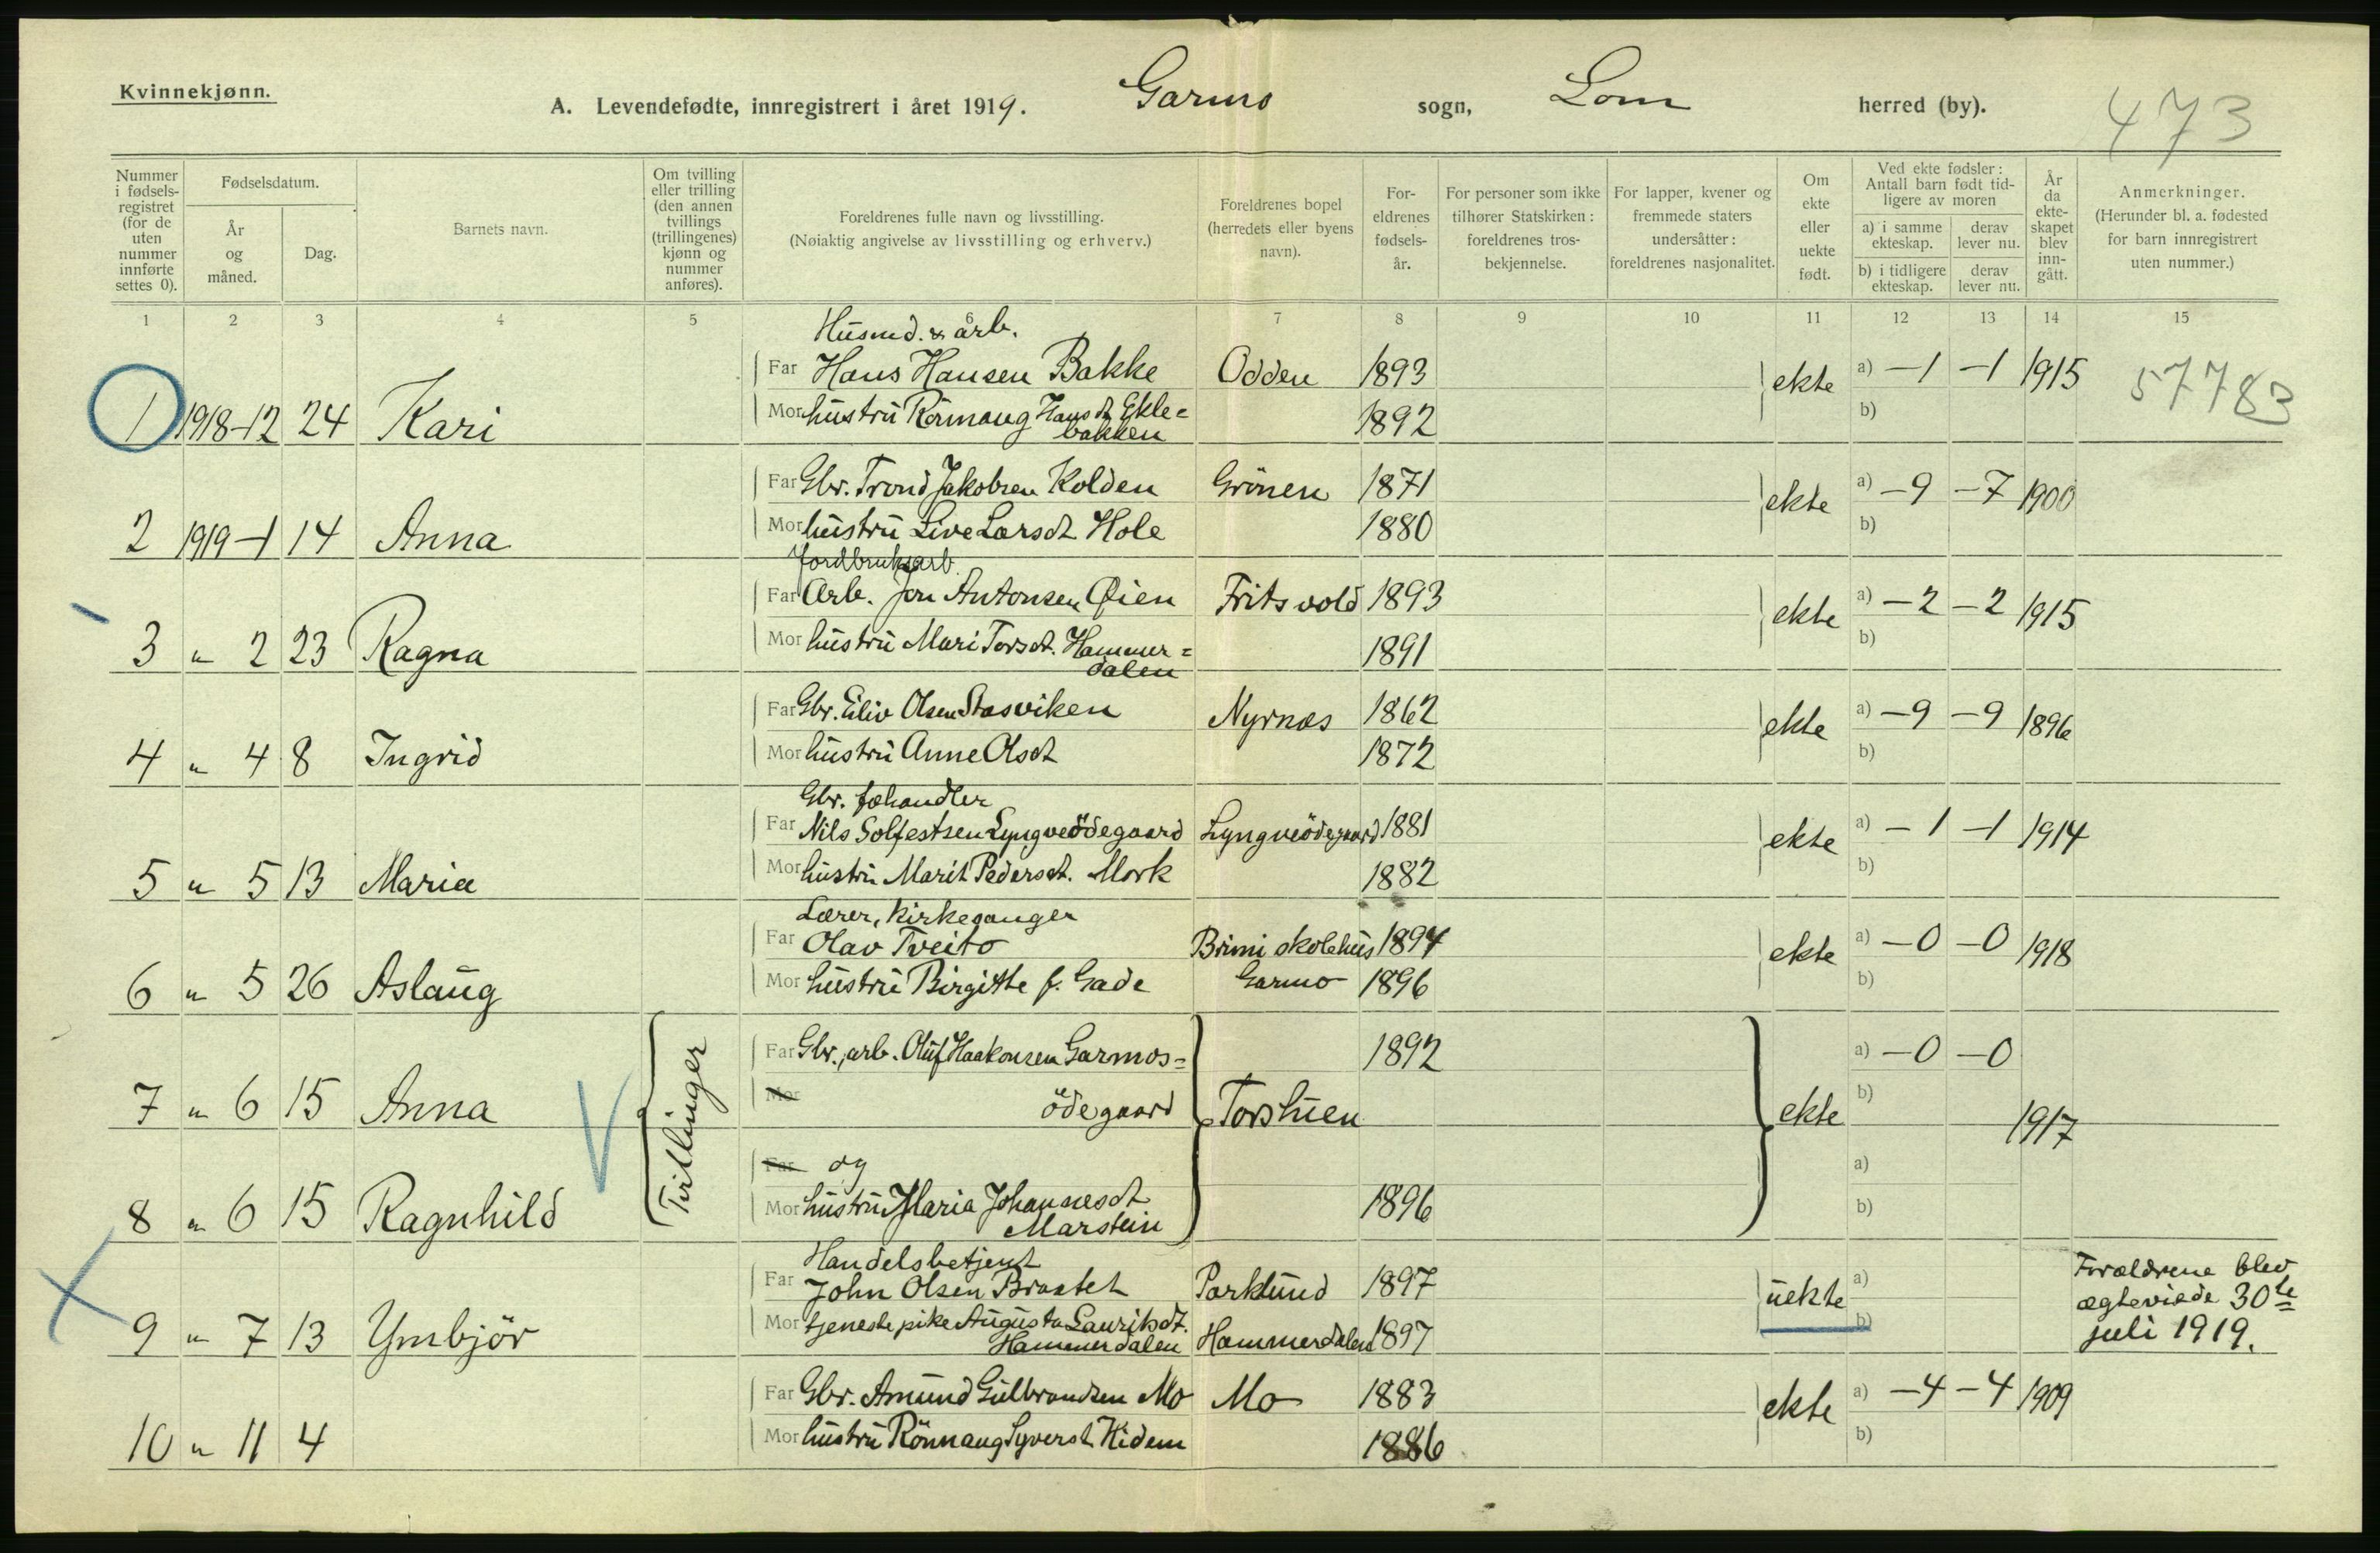 Kvinnekjønn.
A. Levendefødte, innregistrert i året 1919. Garmo sogn, Lom herred (by).
473
Nummer i fødselsregistret (for de uten nummer innførte settes 0).
Fødselsdatum.
År og måned.
Dag.
Barnets navn.
Om tvilling eller trilling (den annen tvillings (trillingenes) kjønn og nummer anføres).
Foreldrenes fulle navn og livsstilling.
(Nøiaktig angivelse av livsstilling og erhverv.)
Foreldrenes bopel (herredets eller byens navn).
Foreldrenes fødselsår.
For personer som ikke tilhører Statskirken: foreldrenes trosbekjennelse.
For lapper, kvener og fremmede staters undersåtter: foreldrenes nasjonalitet.
Om ekte eller uekte født.
Ved ekte fødsler: Antall barn født tidligere av moren
a) i samme ekteskap.
derav lever nu.
b) i tidligere ekteskap.
derav lever nu.
År da ekteskapet blev inngått.
Anmerkninger.
(Herunder bl. a. fødested for barn innregistrert uten nummer.)
1 2 3 4 5 6 7 8 9 10 11 12 13 14 15
Husmd. & arb.
Far Hans Hansen Bakke Odden 1893 ekte a) -1 -1 1915 57783
1 1918-12 24 Kari Mor hustru Rönnaug Hansdt Ekle=
bakken 1892 b)
Far Gbr. Trond Jakobsen Kolden Grönen 1871 ekte a) -9 -7 1900
2 1919-1 14 Anna Mor hustru Live Larsdt Hole 1880 b)
Jordbruksarb.
Far Arb. Jon Antonsen Øien Fritsvold 1893 ekte a) -2 -2 1915
3 " 2 23 Ragna Mor hustru Mari Torsdt. Hammer=
dalen 1891 b)
Far Gbr. Eiliv Olsen Stasviken Nyrnæs 1862 ekte a) -9 -9 1896
4 " 4 8 Ingrid Mor hustru Anne Olsdt 1872 b)
Gbr. fæhandler
Far Nils Solfestsen Lyngveödegaard Lyngveödegaard 1881 ekte a) -1 -1 1914
5 " 5 13 Maria Mor hustru Marit Pedersdt. Mork 1882 b)
Lærer, kirkesanger
Far Olav Tveito Brimi skolehus 1894 ekte a) -0 -0 1918
6 " 5 26 Aslaug Mor hustru Birgitte f. Gade Garmo 1896 b)
Far Gbr., arb. Oluf Haakonsen Garmos= 1892 a) -0 -0
7 " 6 15 Anna Tvillinger Mor ödegaard Torshuen ekte b) 1917
Far og a)
8 " 6 15 Ragnhild Mor hustru Maria Johannesdt
Marstein 1896 b)
Handelsbetjent
Far John Olsen Braatet Parklund 1897 uekte a) Forældrene blev
ægteviede 30te
juli 1919.
9 " 7 13 Ymbjör Mor tjenestepike Augusta Lauritsdt.
Hammerdalen Hammerdalen 1897 b)
Far Gbr. Amund Gulbrandsen Mo Mo 1883 ekte a) -4 -4 1909
10 " 11 4 Mor hustru Rönnaug Syverdt Kidem 1886 b)